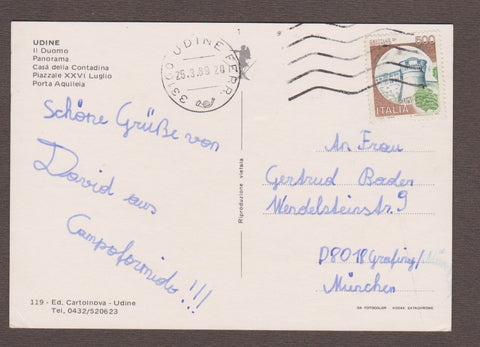 UDINE
Il Duomo
Panorama
Casa della Contadina
Piazzale XXVI Luglio
Porta Aquileia
33100 UDINE FERR.
500
ITALIA
Schöne Grüße von
David aus
Campoformido!!!
An Frau
Gertrud Bader
Wendelsteinstr. 9
D8018 Grafing/
München
Riproduzione vietata
119 - Ed. Cartolnova - Udine
Tel, 0432/520623
SA FOTOCOLOR - KODAK EKTACHROME